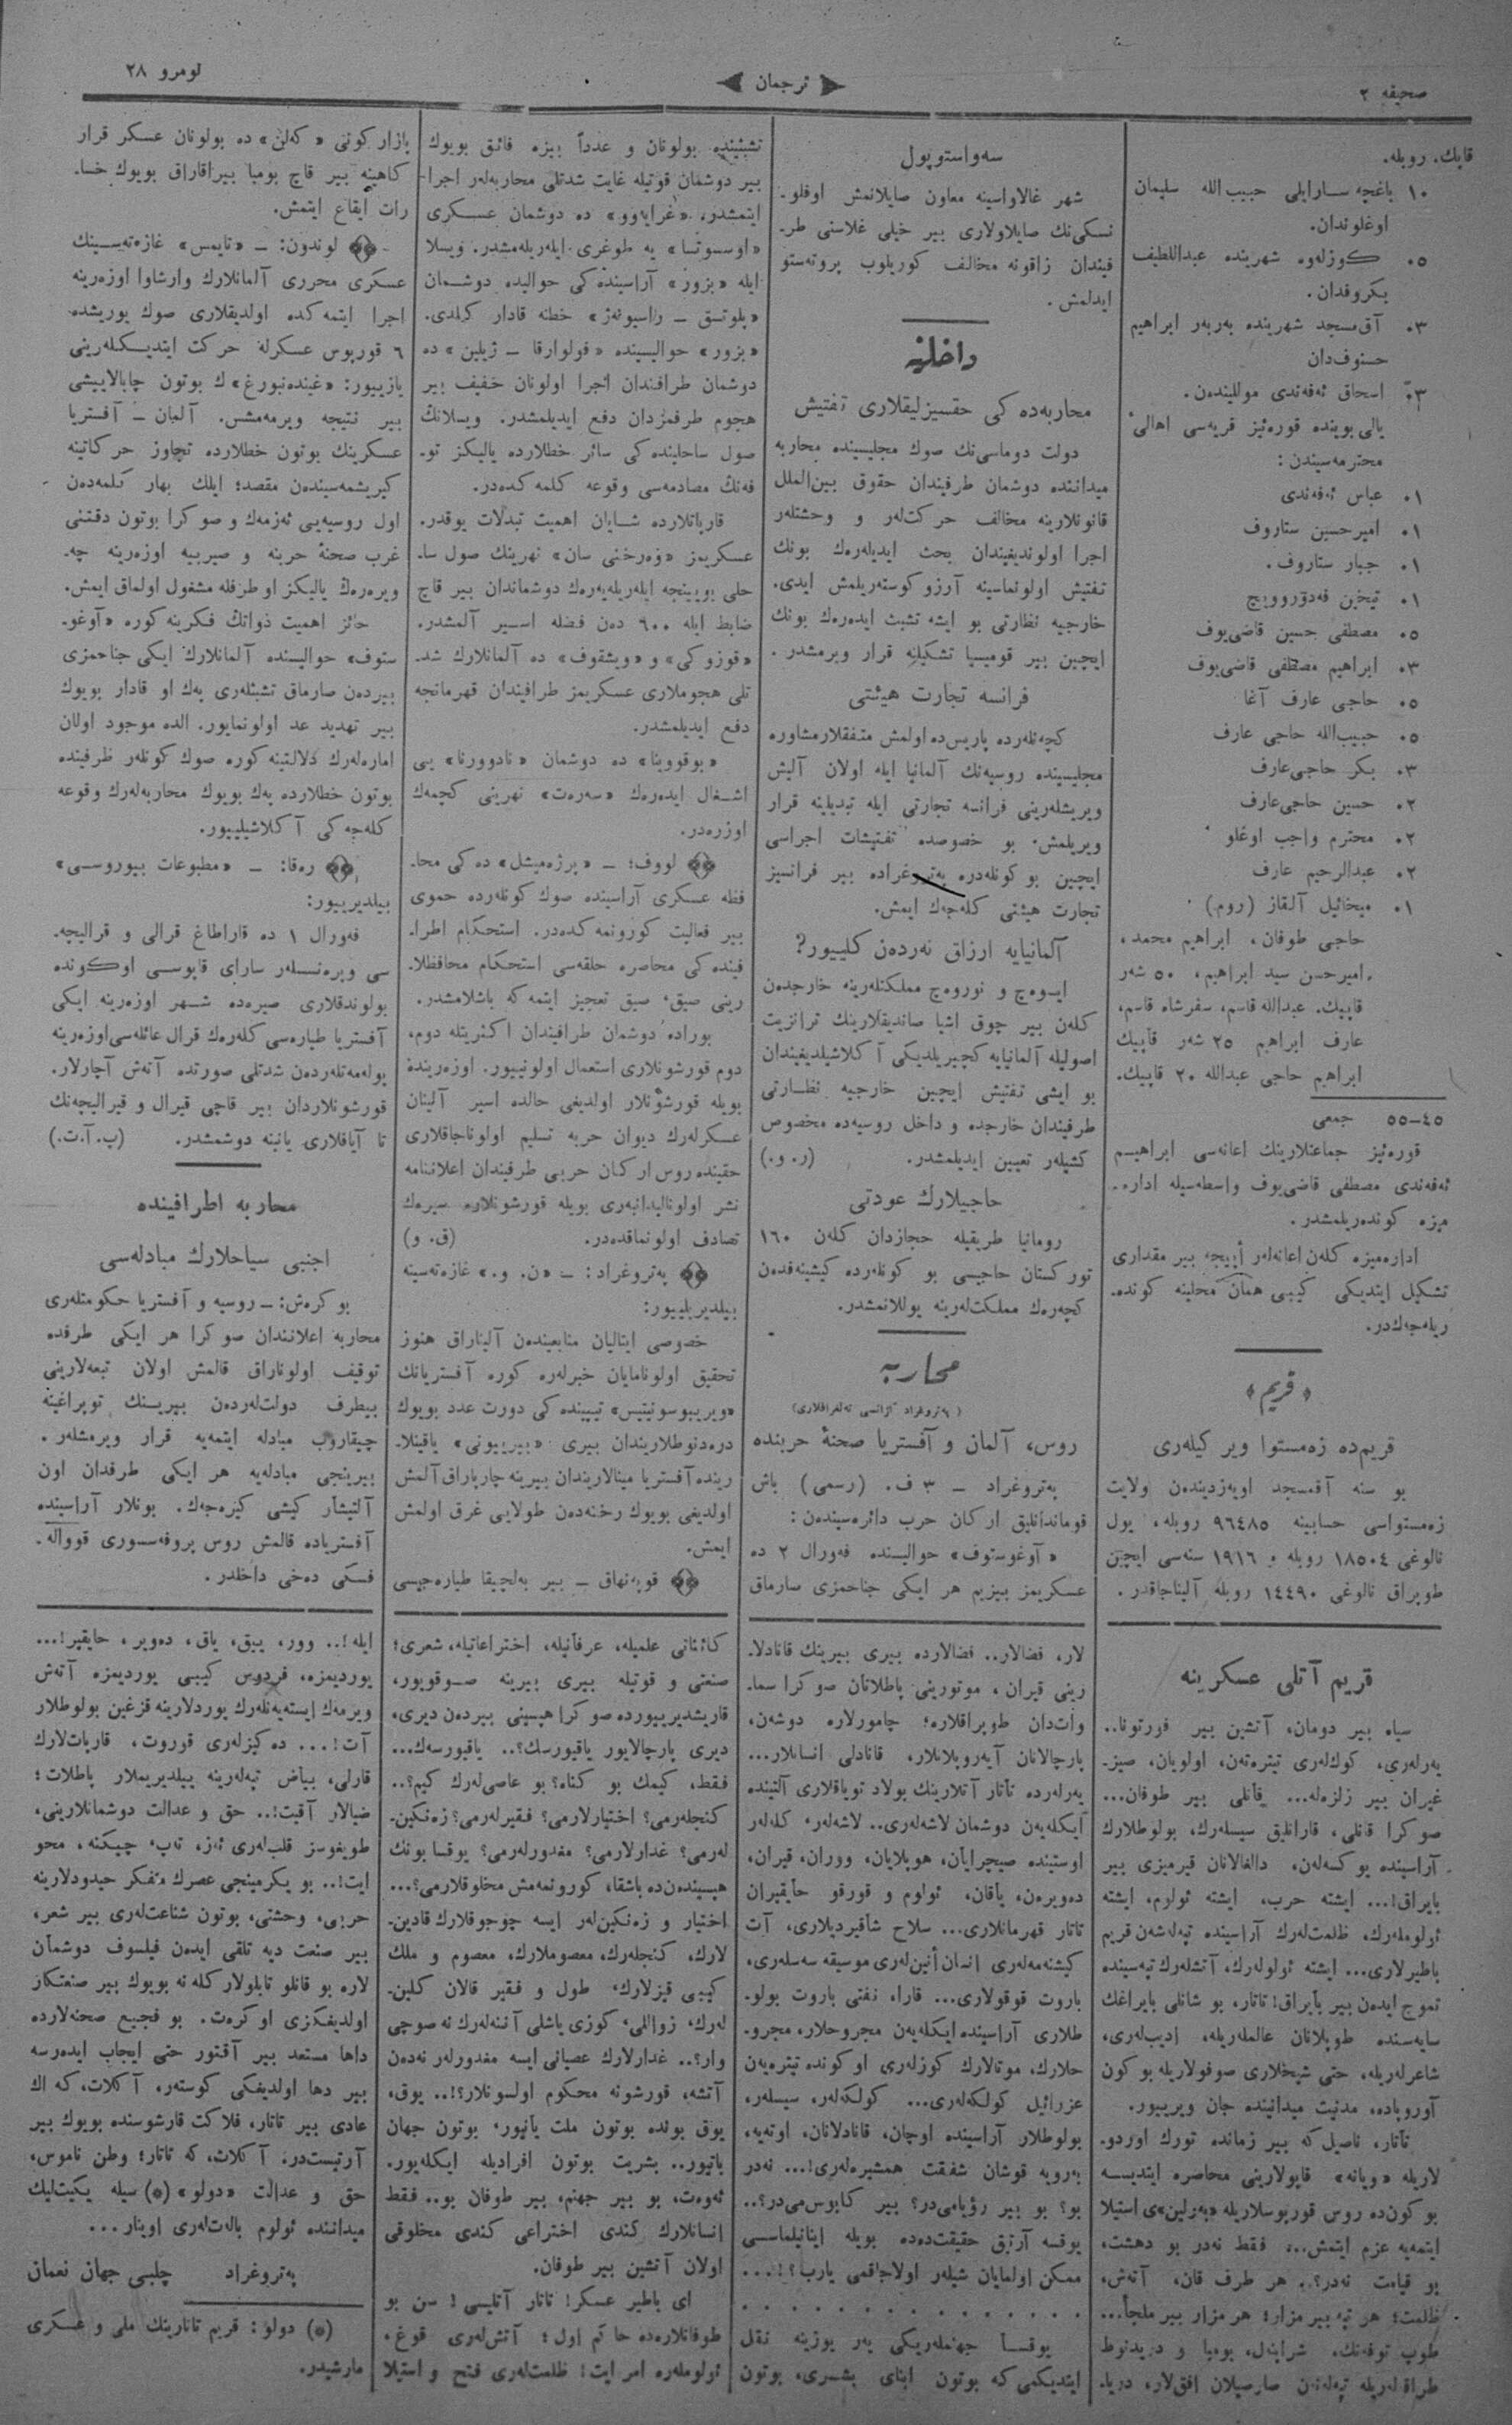 صحیفه ٢
ترجمان
نومرو ٢٨
قاپك. روبله.
١٠ باغچه سـارایلی حبیب‌الله سلیمان
اوغلوندان.
٠٥ كوزله‌وه شهرینده عبداللطیف
بكروفدان.
٠٣ آق‌مسجد شهرینده به‌ربه‌ر ابراهیم
حسنوف‌دان
٠٣ اسحاق ئه‌فه‌ندی موللیندەن.
یالی بوینده قوره‌ئیز قریه‌سی اهالی
محترمه‌سیندن:
٠١ عباس ئه‌فه‌ندی
٠١ امیرحسین ستاروف
٠١ جبار ستاروف.
٠١ تیخین فه‌دوروویچ
٠٥ مصطفی حسین قاضی‌یوف
٠٣ ابراهیم مصطفی قاضی‌یوف
٠٥ حاجی عارف آغا
٠٥ حبیب‌الله حاجی عارف
٠٣ بكر حاجی‌عارف
٠٢ حسین حاجی‌عارف
٠٢ محترم واجب اوغلو
٠٢ عبدالرحیم عارف
٠١ میخائیل آلقاز (روم)
حاجی طوفان، ابراهیم محمد،
امیرحسن سید ابراهیم، ٥٠ شه‌ر
قاپیك. عبدالله قاسم، سفرشاه قاسم،
عارف ابراهیم ٢٥ شه‌ر قاپیك
ابراهیم حاجی عبدالله ٢٠ قاپیك.
٤٥—٥٥ جمعی
قوره‌ئیز جماعتلارینك اعانه‌سی ابراهیم
ئه‌فه‌ندی مصطفی قاضی‌یوف واسطه‌سیله اداره‌
میزه كونده‌ریلمشدر.
اداره‌میزه كلەن اعانه‌له‌ر أییجه بیر مقداری
تشكیل ایتدیكی كیبی همان محلینه كونده‌
ریله‌جه‌كدر.
«قریم»
قریم‌ده زه‌مستوا ویر كیله‌ری
بو سنه آقمسجد اویه‌زدیندەن ولایت
زه‌مستواسی حسابینه ٩٦٤٨٥ روبله، یول
نالوغی ١٨٥٠٤ روبله و ١٩١٦ سنه‌سی ایچین
طوپراق نالوغی ١٤٤٩٠ روبله آلیناجاقدر.
سه‌واستوپول
شهر غالاواسینه معاون صایلانمش اوفلو-
نسكی‌نك صایلاولاری بیر خیلی غلاسنی طر-
فیندان زاقونه مخالف كوریلوب پروته‌ستو
ایدلمش.
داخلیه
محاربه‌ده كی حقسیزلیقلاری تفتیش
دولت دوماسی‌نك صوك مجلیسینده محاربه
میداننده دوشمان طرفیندان حقوق بین‌الملل
قانونلارینه مخالف حركت‌لەر و وحشتلەر
اجرا اولوندیغیندان بحث ایدیله‌رەك بونك
تفتیش اولونماسینه آرزو كوسته‌ریلمش ایدی.
خارجیه نظارتی بو ایشه تشبث ایده‌رەك بونك
ایچین بیر قومیسیا تشكیلنه قرار ویرمشدر.
فرانسه تجارت هیئتی
كچه‌نلرده پاریس‌ده اولمش متفقلار مشاوره
مجلیسینده روسیه‌نك آلمانیا ایله اولان آلیش
ویریشلەرینی فرانسه تجارتی ایله تبدیلینه قرار
ویریلمش. بو خصوصده تفتیشات اجراسی
ایچین بو كونلەرده په‌تروغراده بیر فرانسیز
تجارت هیئتی كله‌جه‌ك ایمش.
آلمانیایه ارزاق نه‌رده‌ن كلییور؟
ایسوه‌چ و نوروه‌چ مملكتلەرینه خارجده‌ن
كلەن بیر چوق اشیا صاندیقلارینك ترانزیت
اصولیله آلمانیایه كچیریلدیكی آ كلاشیلدیغیندان
بو ایشی تفتیش ایچین خارجیه نظـارتی
طرفیندان خارجده و داخل روسیه‌ده مخصوص
كشیلەر تعیین ایدیلمشدر. (ر. و.)
حاجیلارك عودتی
رومانیا طریقیله حجازدان كلەن ١٦٠
توركستان حاجیسی بو كونلەرده كیشینه‌فده‌ن
كچه‌رەك مملكت‌لەرینه یوللانمشدر.
محاربه
(په‌تروغراد آژانسی ته‌لغرافلاری)
روس، آلمان و آفستریا صحنهٔ حربنده
په‌تروغراد — ٣ ف. (رسمی) باش
قومانداندلیق اركان حرب دائره‌سیندەن:
«آوغوستوف» حوالیسنده فه‌ورال ٢ ده
عسكریمز بیزیم هر ایكی جناحمزی صارماق
تشبثینده بولونان و عدداً بیزه فائق بویوك
بیر دوشمان قوتیله غایت شدتلی محاربه‌لەر اجرا
ایتمشدر. «غرایه‌وو» ده دوشمان عسـكری
«اوسسوتسا» یه طوغری ایله‌ریله‌مشدر. ویسلا
ایله «بزور» آراسینده‌كی حوالیده دوشـمان
«پلوتسق — راسیونه‌ژ» خطنه قادار كیلدی.
«بزور» حوالیسینده «قولوارقا — ژیلین» ده
دوشمان طرفندان اجرا اولونان خفیف بیر
هجوم طرفمزدان دفع ایدیلمشدر. ویسلانك
صول ساحلینده كی سائر خطلارده یالیكز تو-
فه‌نك مصادمه‌سی وقوعه كلمه كده‌در.
قارپاتلارده شـایان اهمیت تبدلات یوقدر.
عسكریمز «وه‌رخنی سان» نهرینك صول سا-
حلی بویینجه ایله‌ریله‌یه‌رەك دوشماندان بیر قاچ
ضابط ایله ٦٠٠ ده‌ن فضله اسـیر آلمشدر.
«قوزوكی» و «ویشقوف» ده آلمانلارك شد-
تلی هجوملاری عسكریمز طرفیندان قهرمانجه
دفع ایدیلمشدر.
«بوقووینا» ده دوشمان «نادوورنا» یی
اشـغال ایده‌رەك «سه‌ره‌ت» نهرینی كچمه‌ك
اوزره‌در.
لووف: — «پرژه‌میشل» ده كی محا-
فظه عسكری آراسینده صوك كونلەرده حموی
بیر فعالیت كورونمه كده‌در. استحكام اطرا-
فینده كی محاصره حلقه‌سی استحكام محافظلا-
رینی صیق، صیق تعجیز ایتمه كه باشلامشدر.
بوراده دوشمان طرافیندان اكثریتله دوم،
دوم قورشونلاری استعمال اولونییور. اوزه‌رینده
بویله قورشونلار اولدیغی حالده اسیر آلینان
عسكرلەرك دیوان حربه تسلیم اولوناجاقلاری
حقینده روس اركان حربی طرفیندان اعلاننامه
نشر اولونالیدانبه‌ری بویله قورشونلاره سیره‌ك
تصادف اولونماقده‌در. (ق. و)
په‌تروغراد: — «ن. و.» غازه‌ته‌سینه
بیلدیریلییور:
خصوصی ایتالیان منابعیندەن آلیناراق هنوز
تحقیق اولونامایان خبرلەره كوره آفستریانك
«ویریبوسونیتیس» تیپینده كی دورت عدد بویوك
دره‌دنوطلاریندان بیری «بیربیونی» یاقینلا-
رینده آفستریا مینالاریندان بیرینه چارپاراق آلمش
اولدیغی بویوك رخنه‌ده‌ن طولایی غرق اولمش
ایمش.
قوپه‌نهاق — بیر به‌لچیقا طیاره‌جیسی
بازار كونی «كه‌لن» ده بولونان عسكر قرار
كاهینه بیر قاچ بومبا بیراقاراق بویوك خسا-
رات ایقاع ایتمش.
لوندون: — «تایمس» غازه‌ته‌سـینك
عسكری محرری آلمانلارك وارشاوا اوزه‌رینه
اجرا ایتمه كده اولدیقلاری صوك یوریشده
٦ قورپوس عسكرله حركت ایتدیـكلەرینی
یازییور: «غینده‌نبورغ» ك بوتون چابالاییشی
بیر نتیجه ویرمه‌مشس. آلمان — آفستریا
عسكرینك بوتون خطلارده تجاوز حركاتینه
كیریشمه‌سیندەن مقصد؛ ایلك بهار كلمه‌دەن
اول روسیه‌یی ئه‌زمه‌ك و صوكرا بوتون دقتنی
غرب صحنهٔ حربنه و صیربیه اوزه‌رینه چه-
ویره‌رەك یالیكز او طرفله مشغول اولماق ایمش.
حائز اهمیت ذواتك فكرینه كوره «آوغو-
ستوف» حوالیسنده آلمانلارك ایكی جناحمزی
بیردەن صارماق تشبثلەری پەك او قادار بویوك
بیر تهدید عد اولونمایور. الده موجود اولان
اماره‌لەرك دلالتینه كوره صوك كونلەر طرفینده
بوتون خطلارده پەك بویوك محاربه‌لەرك وقوعه
كله‌جه كی آ كلاشیلییور.
ره‌قا: — «مطبوعات بیوروسـی»
بیلدیرییور:
فه‌ورال ١ ده قاراطاغ قرالی و قرالیچه-
سی و پره‌نسلەر سارای قاپوسـی اوكونده
بولوندقلاری صیره‌ده شـهر اوزه‌رینه ایكی
آفستریا طیاره‌سی كله‌رەك قرال عائله‌سی اوزه‌رینه
پوله‌مه‌تلەردەن شدتلی صورتده آتەش آچارلار.
قورشونلاردان بیر قاچی قیرال و قیرالیچه‌نك
تا آیاقلاری یانینه دوشمشدر. (پ. آ. ت.)
محاربه اطرافینده
اجنبی سیاحلارك مبادله‌سی
بوكره‌ش: — روسیه و آفستریا حكومتلەری
محاربه اعلانندان صوكرا هر ایكی طرفده
توقیف اولوناراق قالمش اولان تبعه‌لارینی
بیطرف دولت‌لەردەن بیریسـنك توپراغینه
چیقاروب مبادله ایتمه‌یه قرار ویرمشلەر.
بیرینجی مبادله‌یه هر ایكی طرفدان اون
آلتیشأر كیشی كیره‌جه‌ك. بونلار آراسینده
آفستریاده قالمش روس پروفه‌سـوری قوواله-
فسكی ده‌خی داخلدر.
قریم آتلی عسكرینه
سیاه بیر دومان، آتشین بیر فورتونا..
یه‌رلەری، كوك‌لەری تیتره‌تەن، اولویان، صیز-
غیران بیر زلزله... قأنلی بیر طوفان...
صوكرا قانلی، قارانلیق سیسلەرك، بولوطلارك
آراسینده یوكسه‌لەن، دالغالانان قیرمیزی بیر
بایراق!... ایشته حرب، ایشته ئولوم، ایشته
ئولوملەرك، ظلمت‌لەرك آراسینده تپه‌له‌شەن قریم
باطیرلاری... ایشته ئولولەرك، آتشلەرك تپه‌سینده
تموج ایدەن بیر بایراق! تاتار، بو شانلی بایراغك
سایه‌سنده طوپلانان عالملەریله، ادیب‌لەری،
شاعرلەریله، حتی شیخلاری صوفولاریله بوكون
آوروپاده، مدنیت میدانینده جان ویرییور.
تأتار، ناصیل كه بیر زمانده تورك اوردو-
لاریله «ویانه» قاپولارینی محاصره ایتدیسـه
بوكون‌ده روس قورپوسلاریله «به‌رلین»ی استیلا
ایتمه‌یه عزم ایتمش..» فقط نه‌در بو دهشت،
بو قیامت نه‌در؟. هر طرف قان، آتەش،
ظلمت؛ هر تپه بیر مزار؛ هر مزار بیر ملجأ...
طوپ توفه‌نك، شراپنەل، بومبا و دریدنوط
طراقه‌لەریله تپه‌له‌نەن صارصیلان افق‌لار، دریا-
لار، فضالار.. فضالارده بیری بیرینك قانادلا-
رینی قیران، موتورینی پاطلاتان صوكرا سما-
وات‌دان طوپراقلاره؛ چامورلاره دوشەن،
پارچالانان آیه‌روپلانلار، قانادلی انسانلار...
یه‌رلەرده تأتار آتلارینك پولاد تویاقلاری آلتینده
ایكله‌یەن دوشمان لاشه‌لەری.. لاشه‌لەر، كلله‌لەر
اوستینده صیچرایان، هوپلایان، ووران، قیران،
ده‌ویرەن، یأقان، ئولوم و قورقو حأیقیران
تاتار قهرمانلاری... سلاح شأقیردیلاری، آت
كیشنه‌مه‌لەری انسان أنین‌لەری موسیقه سه‌سلەری،
باروت قوقولاری... قارا، نفتی باروت بولو-
طلاری آراسینده ایكله‌یەن مجروحلار، مجرو-
حلارك، موتالارك كوزلەری اوكونده تیتره‌یەن
عزرائیل كولكه‌لەری... كولكه‌لەر، سیسلەر،
بولوطلار آراسینده اوچان، قانادلانان، اوته‌یه،
به‌رویه قوشان شفقت همشیره‌لەری!... نه‌در
بو؟ بو بیر رؤیامی‌در؟ بیر كابوس‌می‌در؟..
یوقسه آرتق حقیقت‌ده‌ده بویله اینانیلماسـی
ممكن اولمایان شیلەر اولاجاقمی یارب؟!...
یوقسـا جهنملەریكی یه‌ر یوزینه نقل
ایتدیكمی كه بوتون ابنای بشـری، بوتون
كائناتی علمیله، عرفانیله، اختراعاتیله، شعری؛
صنعتی و قوتیله بیری بیرینه صـوقویور،
قاریشدیرییورده صوكرا هپسینی بیردەن دیری،
دیری پارچالایور یاقیورسك؟.. یاقیورسه‌ك...
فـقط، كیمك بو كناه؟ بو عاصی‌لەرك كیم؟..
كنجلەرمی؟ اختیارلارمی؟ فقیرلەرمی؟ زه‌نكین-
لەرمی؟ غدارلارمی؟ مغدورلەرمی؟ یوقسا بونك
هپسیندەن‌ده باشقا، كورونمه‌مش مخلوقلارمی؟...
اختیار و زه‌نكین‌لەر ایسه چوجوقلارك قادین-
لارك، كنجلەرك، معصوملارك، معصوم و ملك
كیبی قیزلارك، طول و فقیر قالان كلین-
لەرك، زواللی، كوزی یاشلی آننه‌لەرك نه صوچی
وار؟.. غدارلارك عصیانی ایسه مغدورلەر نه‌دەن
آتشه، قورشونه محكوم اولسونلار؟!.. یوق،
یوق بونده بوتون ملت یأنیور، بوتون جهان
یاتیور.. بشریت بوتون افرادیله ایكله‌یور.
ئه‌وەت، بو بیر جهنم، بیر طوفان بو.. فـقط
انسانلارك كندی اختراعی كندی مخلوقی
اولان آتشین بیر طوفان.
ای باطیر عسكر! تاتار آتلیسی! سن بو
طوفانلارده‌ده حا كم اول؛ آتش‌لەری قوغ،
ئولوملەره امر ایت؛ ظلمت‌لەری فتح و استیلا
ایله!.. وور، ییق، یاق، ده‌ویر، حایقیر!...
یوردیمزه، فردوس كیبی یوردیمزه آتەش
ویرمه‌ك ایسته‌یەنلەرك یوردلارینه قزغین بولوطلار
آت!... ده كیزلەری قوروت، قارپات‌لارك
قارلی، بیأض تپه‌لەرینه ییلدیریملار پاطلات؛
ضیالار آقیت!.. حق و عدالت دوشمانلارینی،
طویغوسز قلب‌لەری ئه‌ز، ته‌پ، چیكنه، محو
ایت!.. بو یكرمینجی عصرك متفكر حیدودلارینه
حربی، وحشتی، بوتون شناعت‌لەری بیر شعر،
بیر صنعت دیه تلقی ایدەن فیلسوف دوشمأن
لاره بو قانلو تابلولار كله نه بویوك بیر صنعتكار
اولدیغكزی اوكرەت. بو فجیع صحنه‌لارده
داها مستعد بیر آقتور حتی ایجاب ایده‌رسه
بیر دها اولدیغكی كوستەر، آ كلات، كه اك
عادی بیر تاتار، فلاكت قارشوسنده بویوك بیر
آرتیست‌در. آ كلات، كه تاتار؛ وطن ناموس،
حق و عدالت «دولو» (*) سیله یكیت‌لیك
میداننده ئولوم بالەت‌لەری اوینار...
په‌تروغراد چلبی جهان نعمان
(*) دولو: قریم تاتارینك ملی و عسكری
مارشیدر.